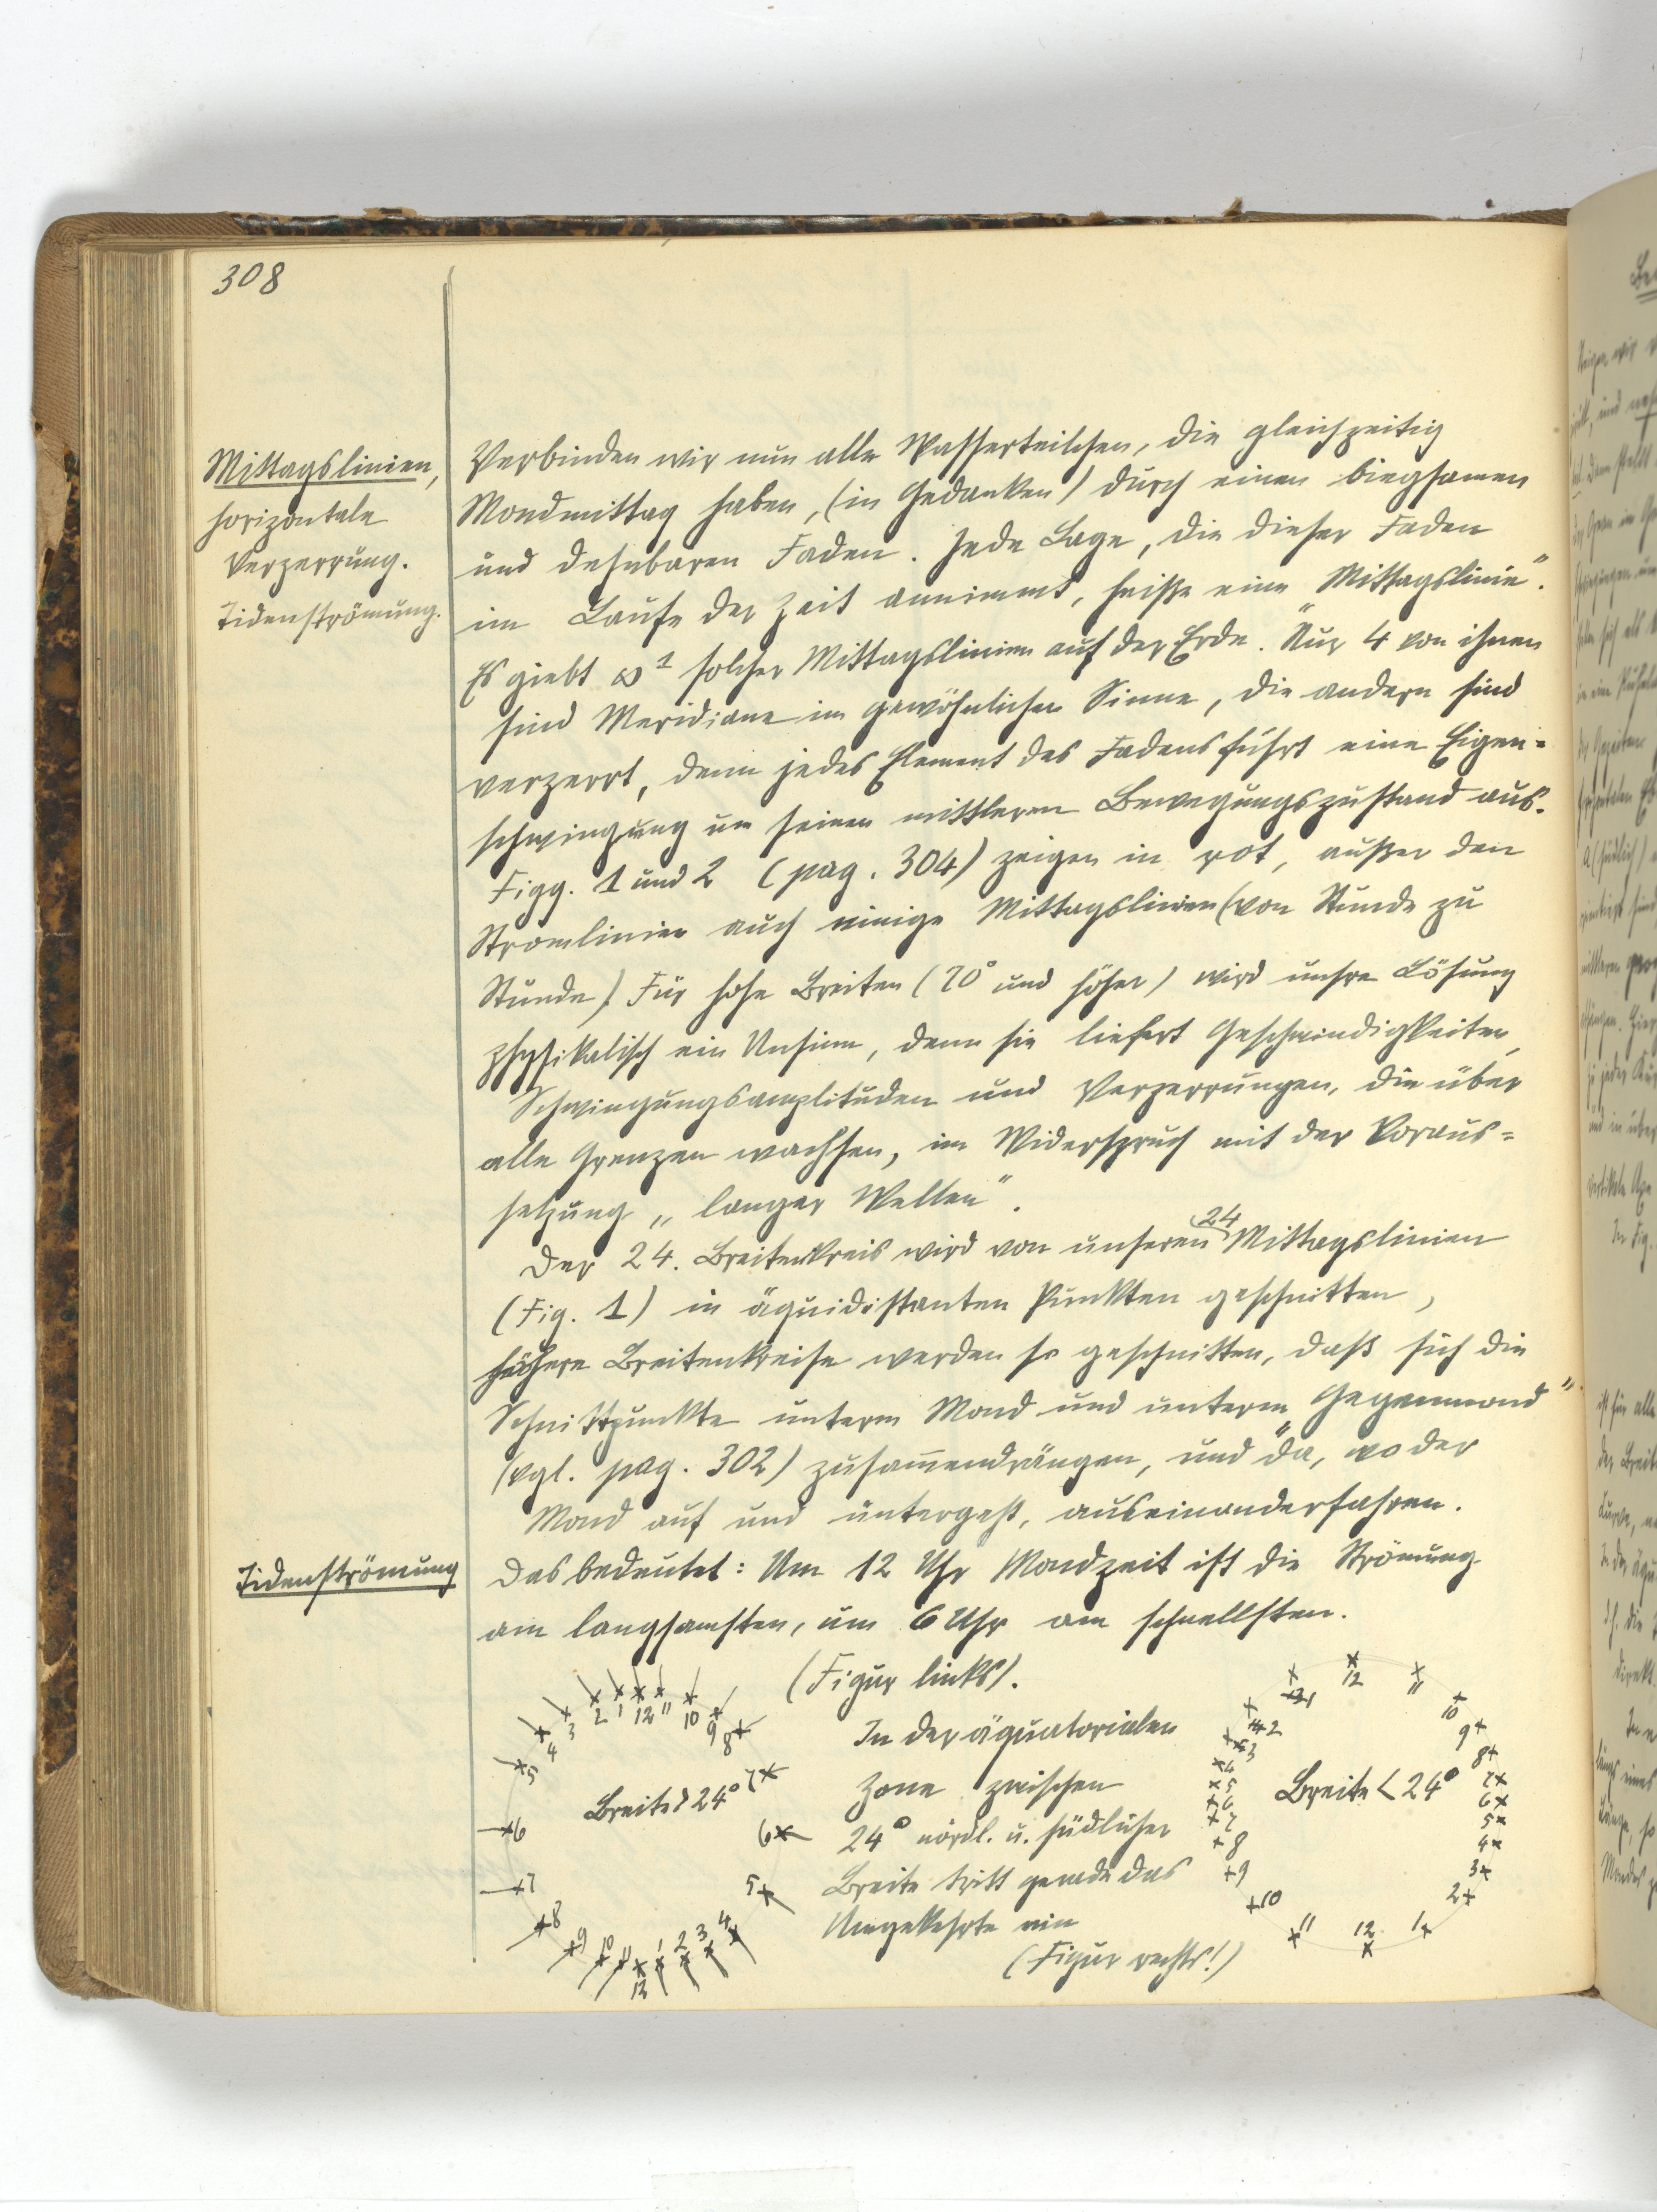 308
Mittagslinien,
horizontale
Verzerrung.
Tidenströmung.
Verbinden wir nun alle Wasserteilchen, die gleichzeitig
Mondmittag haben, (in Gedanken) durch einen biegsamen
und dehnbaren Faden. Jede Lage, die dieser Faden
im Laufe der Zeit annimmt, heiße eine „Mittagslinie“.
Es giebt ∞¹ solcher Mittagslinien auf der Erde. Nur 4 von ihnen
sind Meridiane im gewöhnlichen Sinne, die andern sind
verzerrt, denn jedes Element des Fadens führt eine Eigen=
schwingung um seinen mittleren Bewegungszustand aus.
Figg. 1 und 2 (pag. 304) zeigen in rot, außer den
Stromlinien auch einige Mittagslinien (von Stunde zu
Stunde). Für hohe Breiten (70° und höher) wird unsre Lösung
physikalisch ein Unsinn, denn sie liefert Geschwindigkeiten,
Schwingungsamplituden und Verzerrungen, die über
alle Grenzen wachsen, im Widerspruch mit der Voraus=
setzung „langer Wellen“.
Der 24. Breitenkreis wird von unseren 24 Mittagslinien
(Fig. 1) in äquidistanten Punkten geschnitten,
höhere Breitenkreise werden so geschnitten, daß sich die
Schnittpunkte unterm Mond und unterm „Gegenmond“
(vgl. pag. 302) zusammendrängen, und da, wo der
Mond auf und untergeht, auseinanderfahren.
Tidenströmung
Das bedeutet: Um 12 Uhr Mondzeit ist die Strömung
am langsamsten, um 6 Uhr am schnellsten.
(Figur links).
In der äquatorialen
Zone zwischen
24° nördl. u. südlicher
Breite tritt gerade das
Umgekehrte ein
(Figur rechts!)
2 1 12 11 10 9 8
3
4
5
Breite > 24° 7
6 6
7 5
8
9 10 11 12 1 2 3 4
1 12 11
10
2 9
3 8
4 7
5 Breite < 24° 6
6 5
7 4
8 3
9 2
10
11 12 1